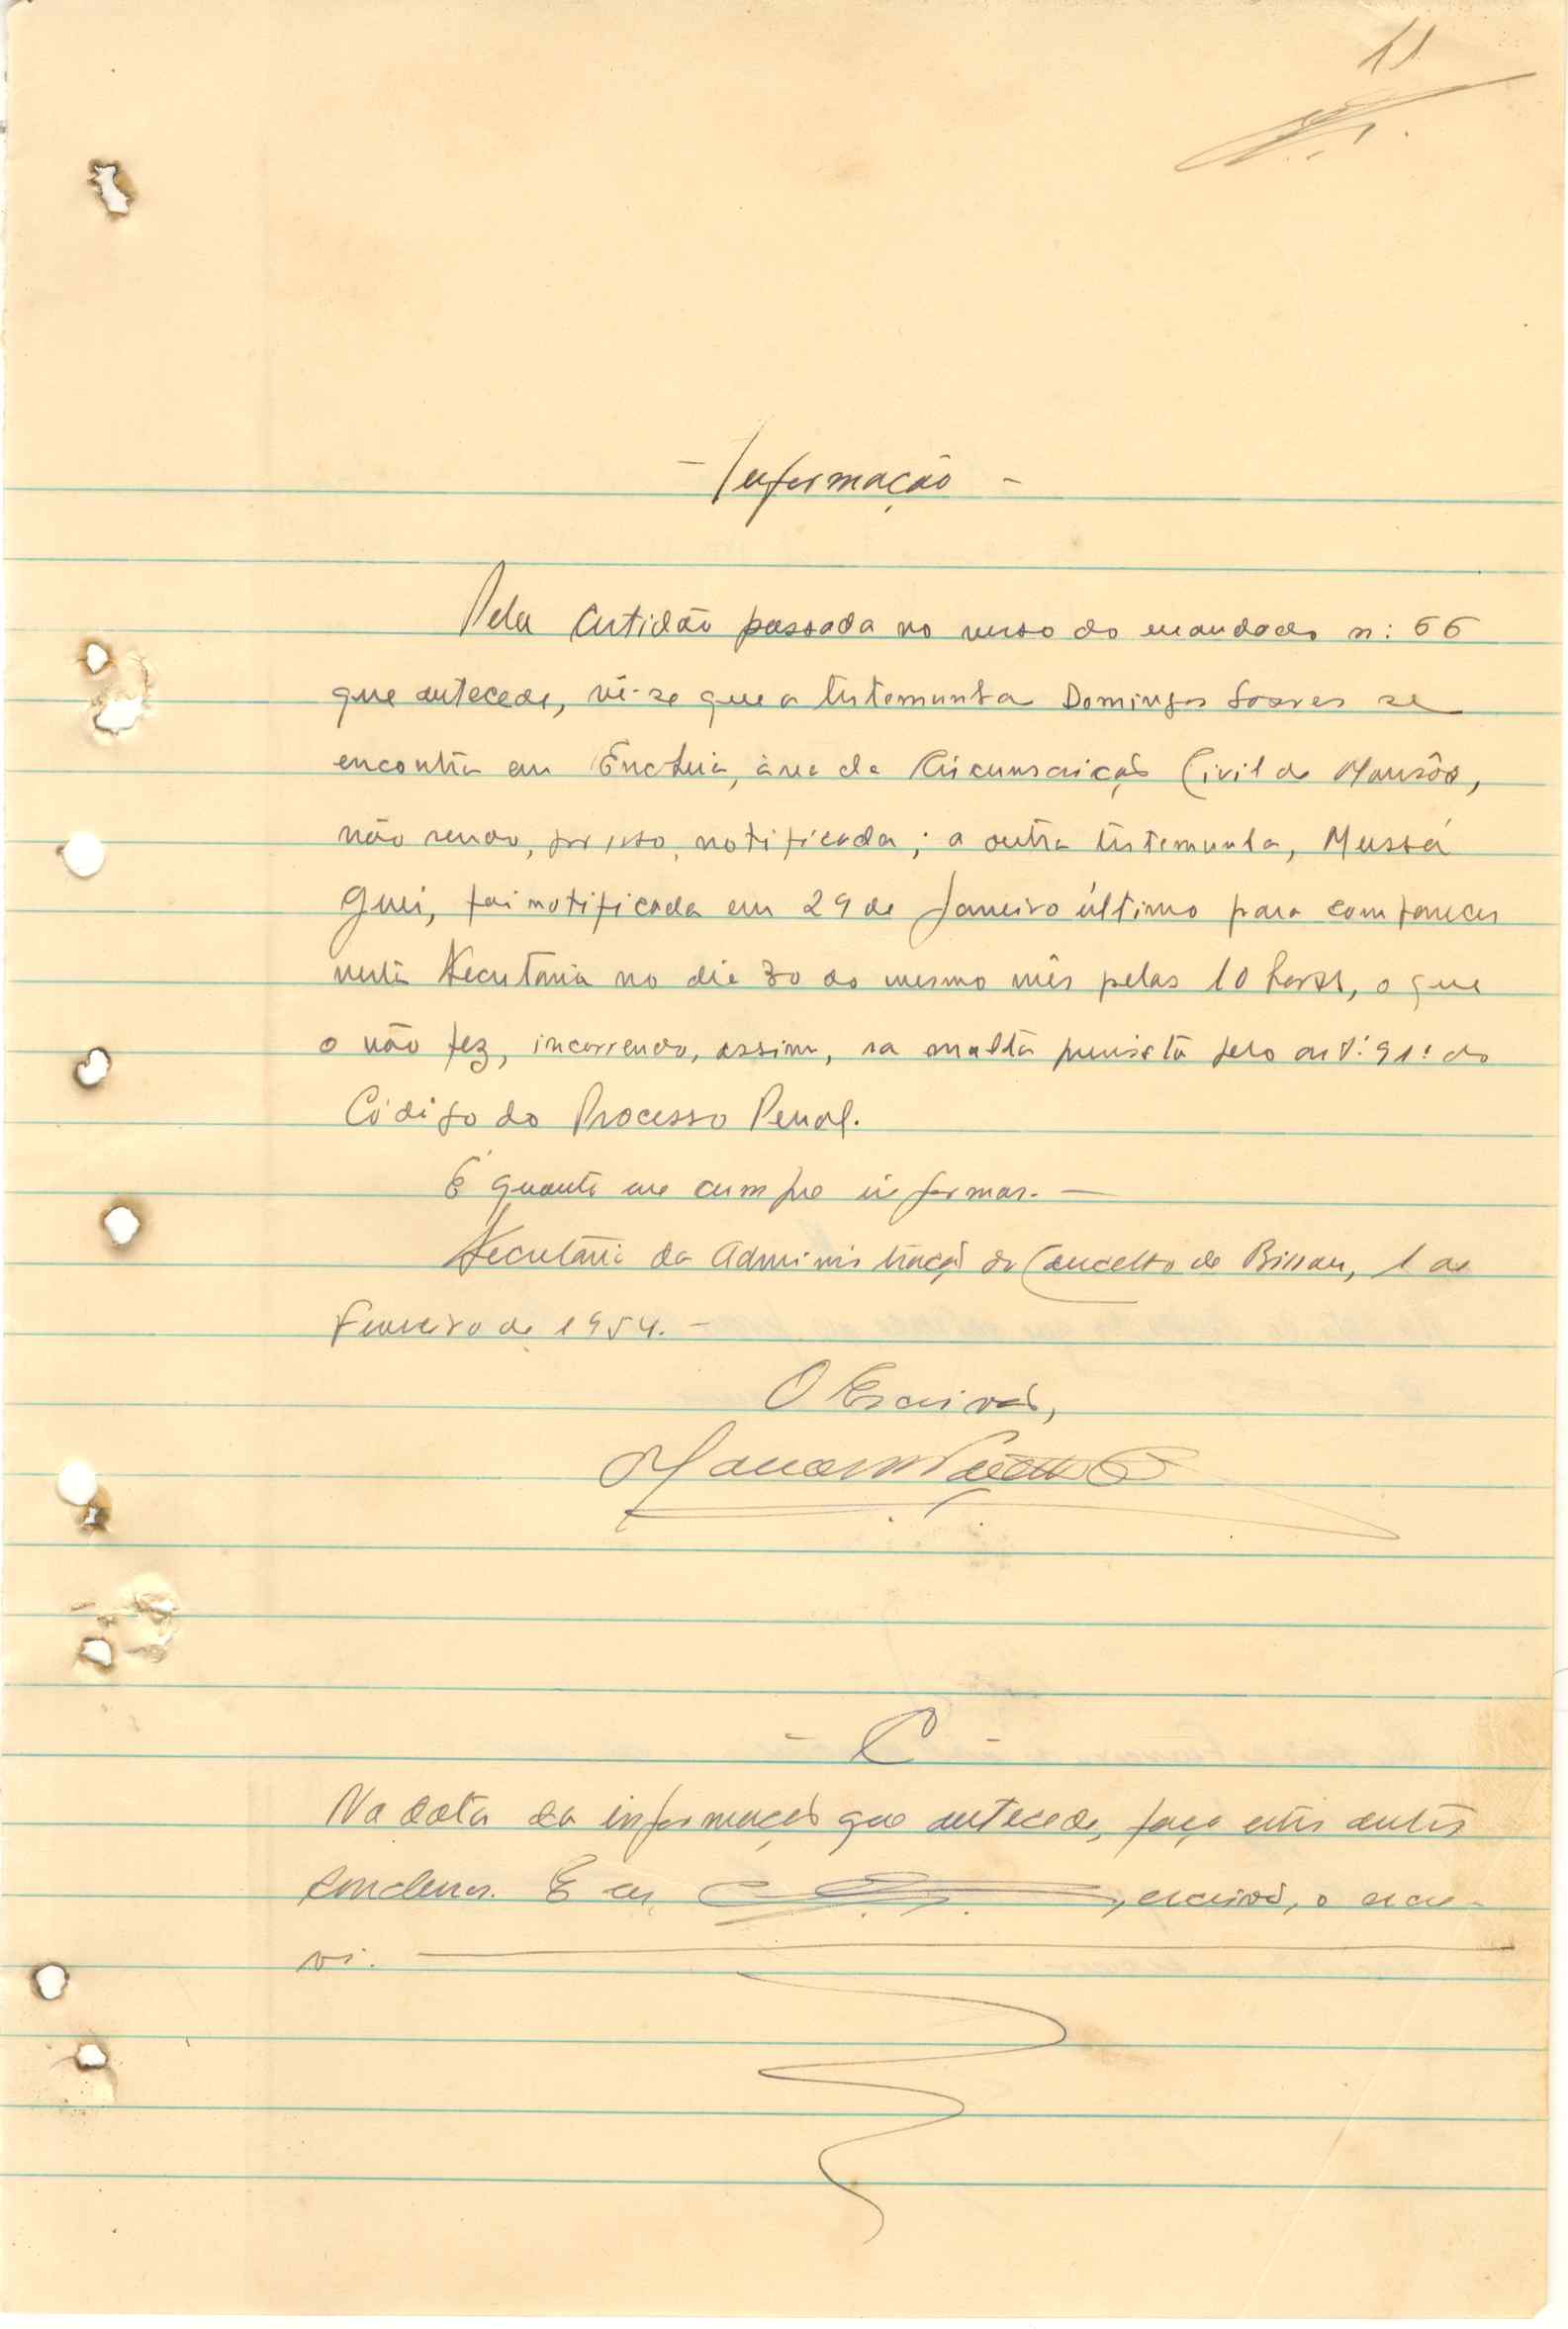 11
- Informação -
Pela Certidão passada no verso do mandado n: 66
que antecede, vê-se que a testemunha Domingos Soares se
encontra em Encheia, área da Circunscrição Civil de Mansôa,
não sendo, por isso, notificada; a outra testemunha, Mussá
Guei, foi notificada em 29 de Janeiro último para comparecer
nesta Secretaria no dia 30 do mesmo mês pelas 10 horas, o que
o não fez, incorrendo, assim, na multa prevista pelo artº 91º do
Código do Processo Penal.
É quanto me cumpre informar. —
Secretaria da Administração do Concelho de Bissau, 1 de
Fevereiro de 1954. -
O Escrivão,
- C -
Na data da informação que antecede, faço estes autos
conclusos. E eu, , escrivão, o escre-
vi.